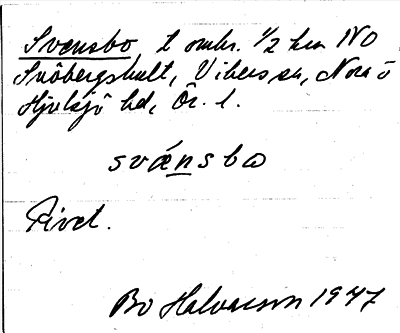 Svensbo, t omkr. 1/2 km NO
Snöbergshult, Vikers sn, Nora o
Hjulsjö hd, Ör. l.
svænsbo
Rivet.
Bo Halvarson 1947